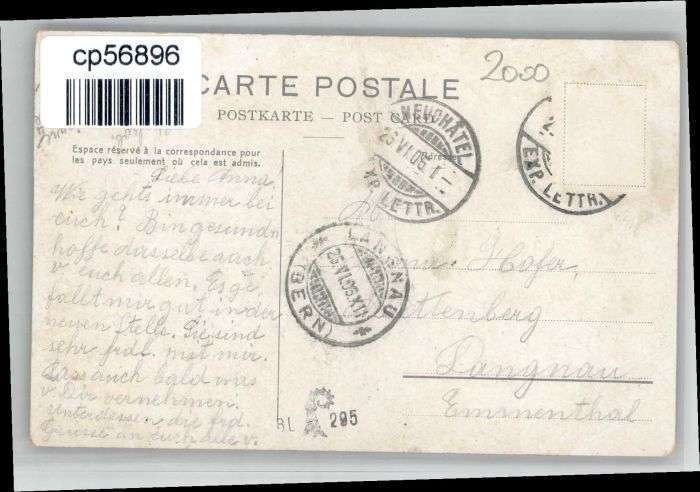 cp56896
CARTE POSTALE
2000
POSTKARTE — POST CARD
Espace réservé à la correspondance pour
les pays seulement où cela est admis.
NEUCHÂTEL
26.VI.06
EXP. LETTR.
EXP. LETTR.
Liebe Anna,
Wie gehts immer bei
euch? Bin gesund u
hoffe dasselbe auch
v euch allen. Es ge
fällt mir gut in der
neuen Stelle. Sie sind
sehr frdl. mit mir.
Lass auch bald was
v dir vernehmen.
unterdessen die frd.
Grüsse an Euch alle v.
LANGNAU
26.VI.06.XII
(BERN)
Hofer,
Langnau
Emmenthal
BL 295